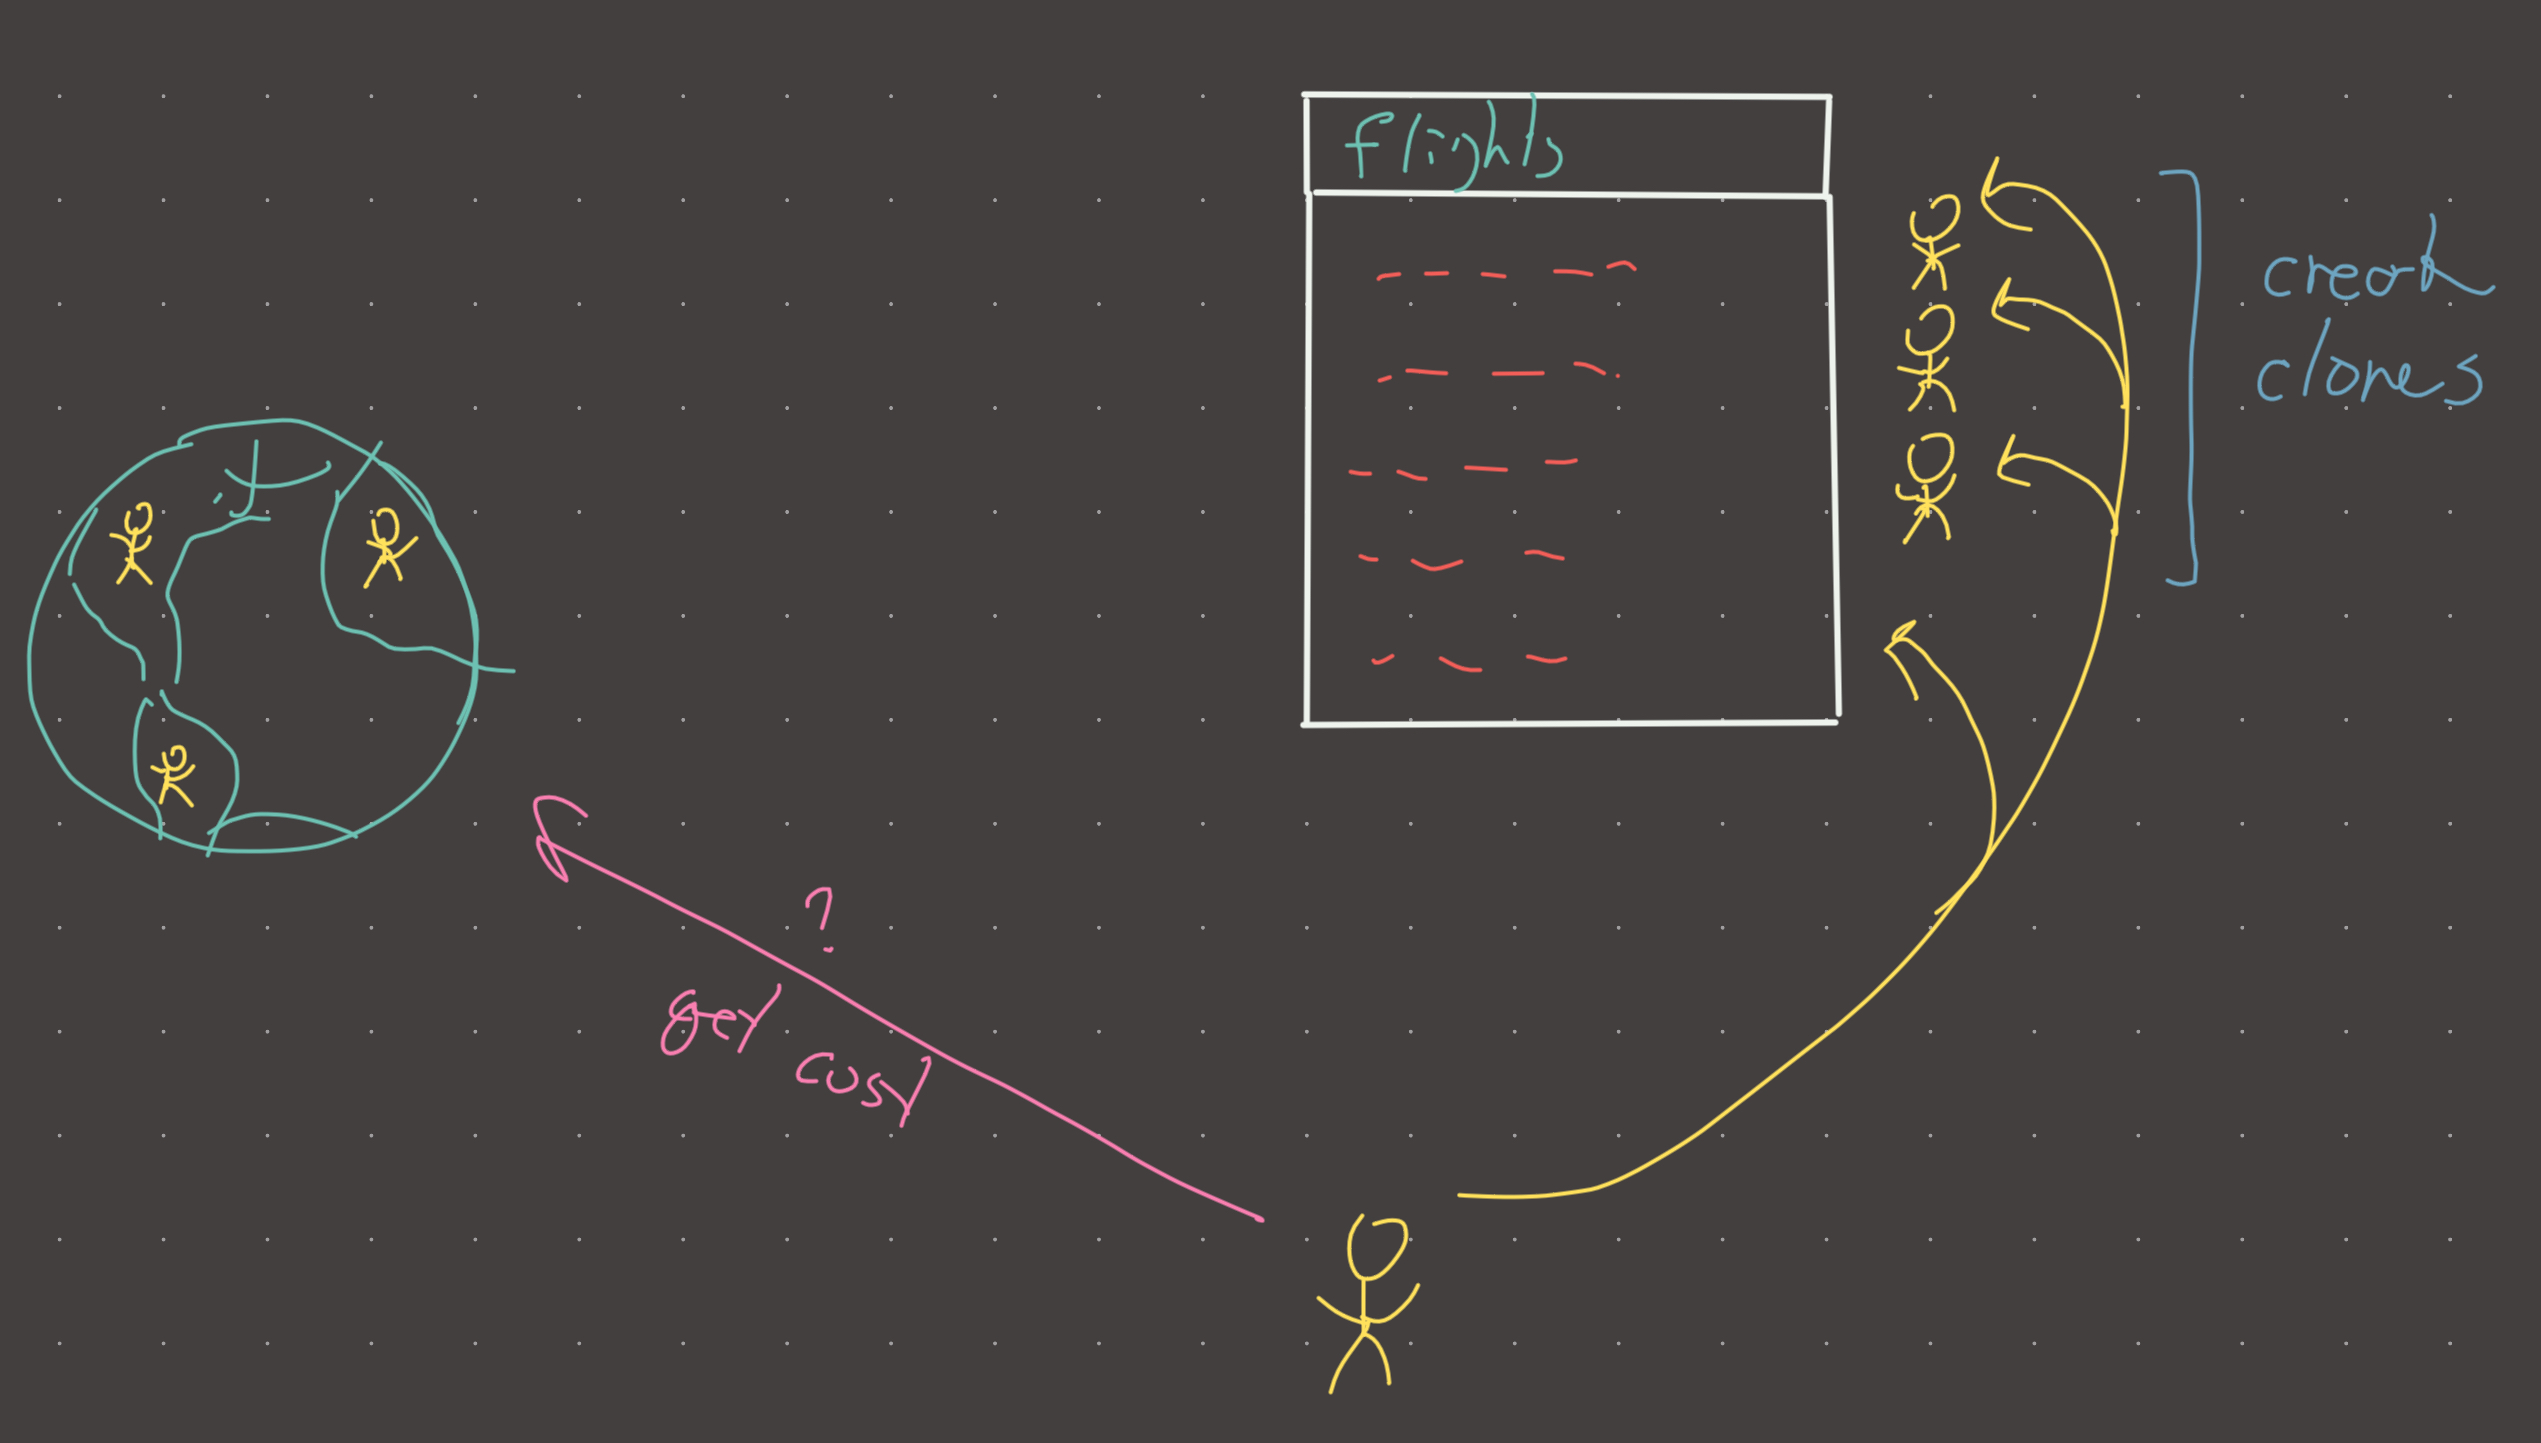 flights
create
clones
?
get
cost